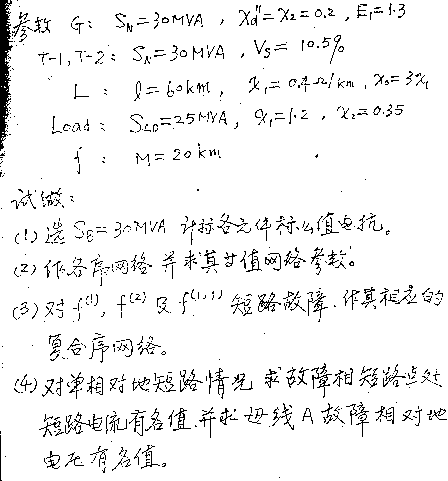 参数 G: S_N=30MVA, X_d''=X_2=0.2, E_1=1.3
T-1, T-2: S_N=30MVA, V_S=10.5%
L: l=60km, x_1=0.4Ω/km, x_0=3x_1
Load: S_LD=25MVA, x_1=1.2, x_2=0.35
f: M=20km
试做:
(1) 选 S_B=30MVA 计算各元件标么值电抗。
(2) 作各序网络并求其等值网络参数。
(3) 对 f^(1), f^(2) 及 f^(1,1) 短路故障,作其相应的
复合序网络。
(4) 对单相对地短路情况,求故障相短路点处
短路电流有名值,并求母线A故障相对地
电压有名值。